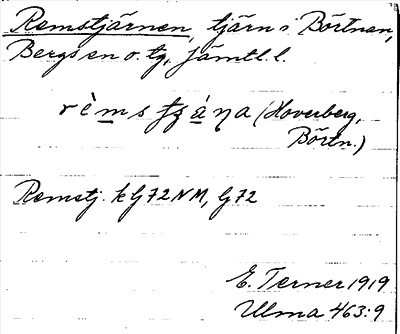 Remstjärnen, tjärn i Börtnan,
Bergs sn o. tg, Jämtl. l.
(Hoverberg,
Börtn.)
Remstj. k G 72 NM, G 72
E. Terner 1919
Ulma 463:9